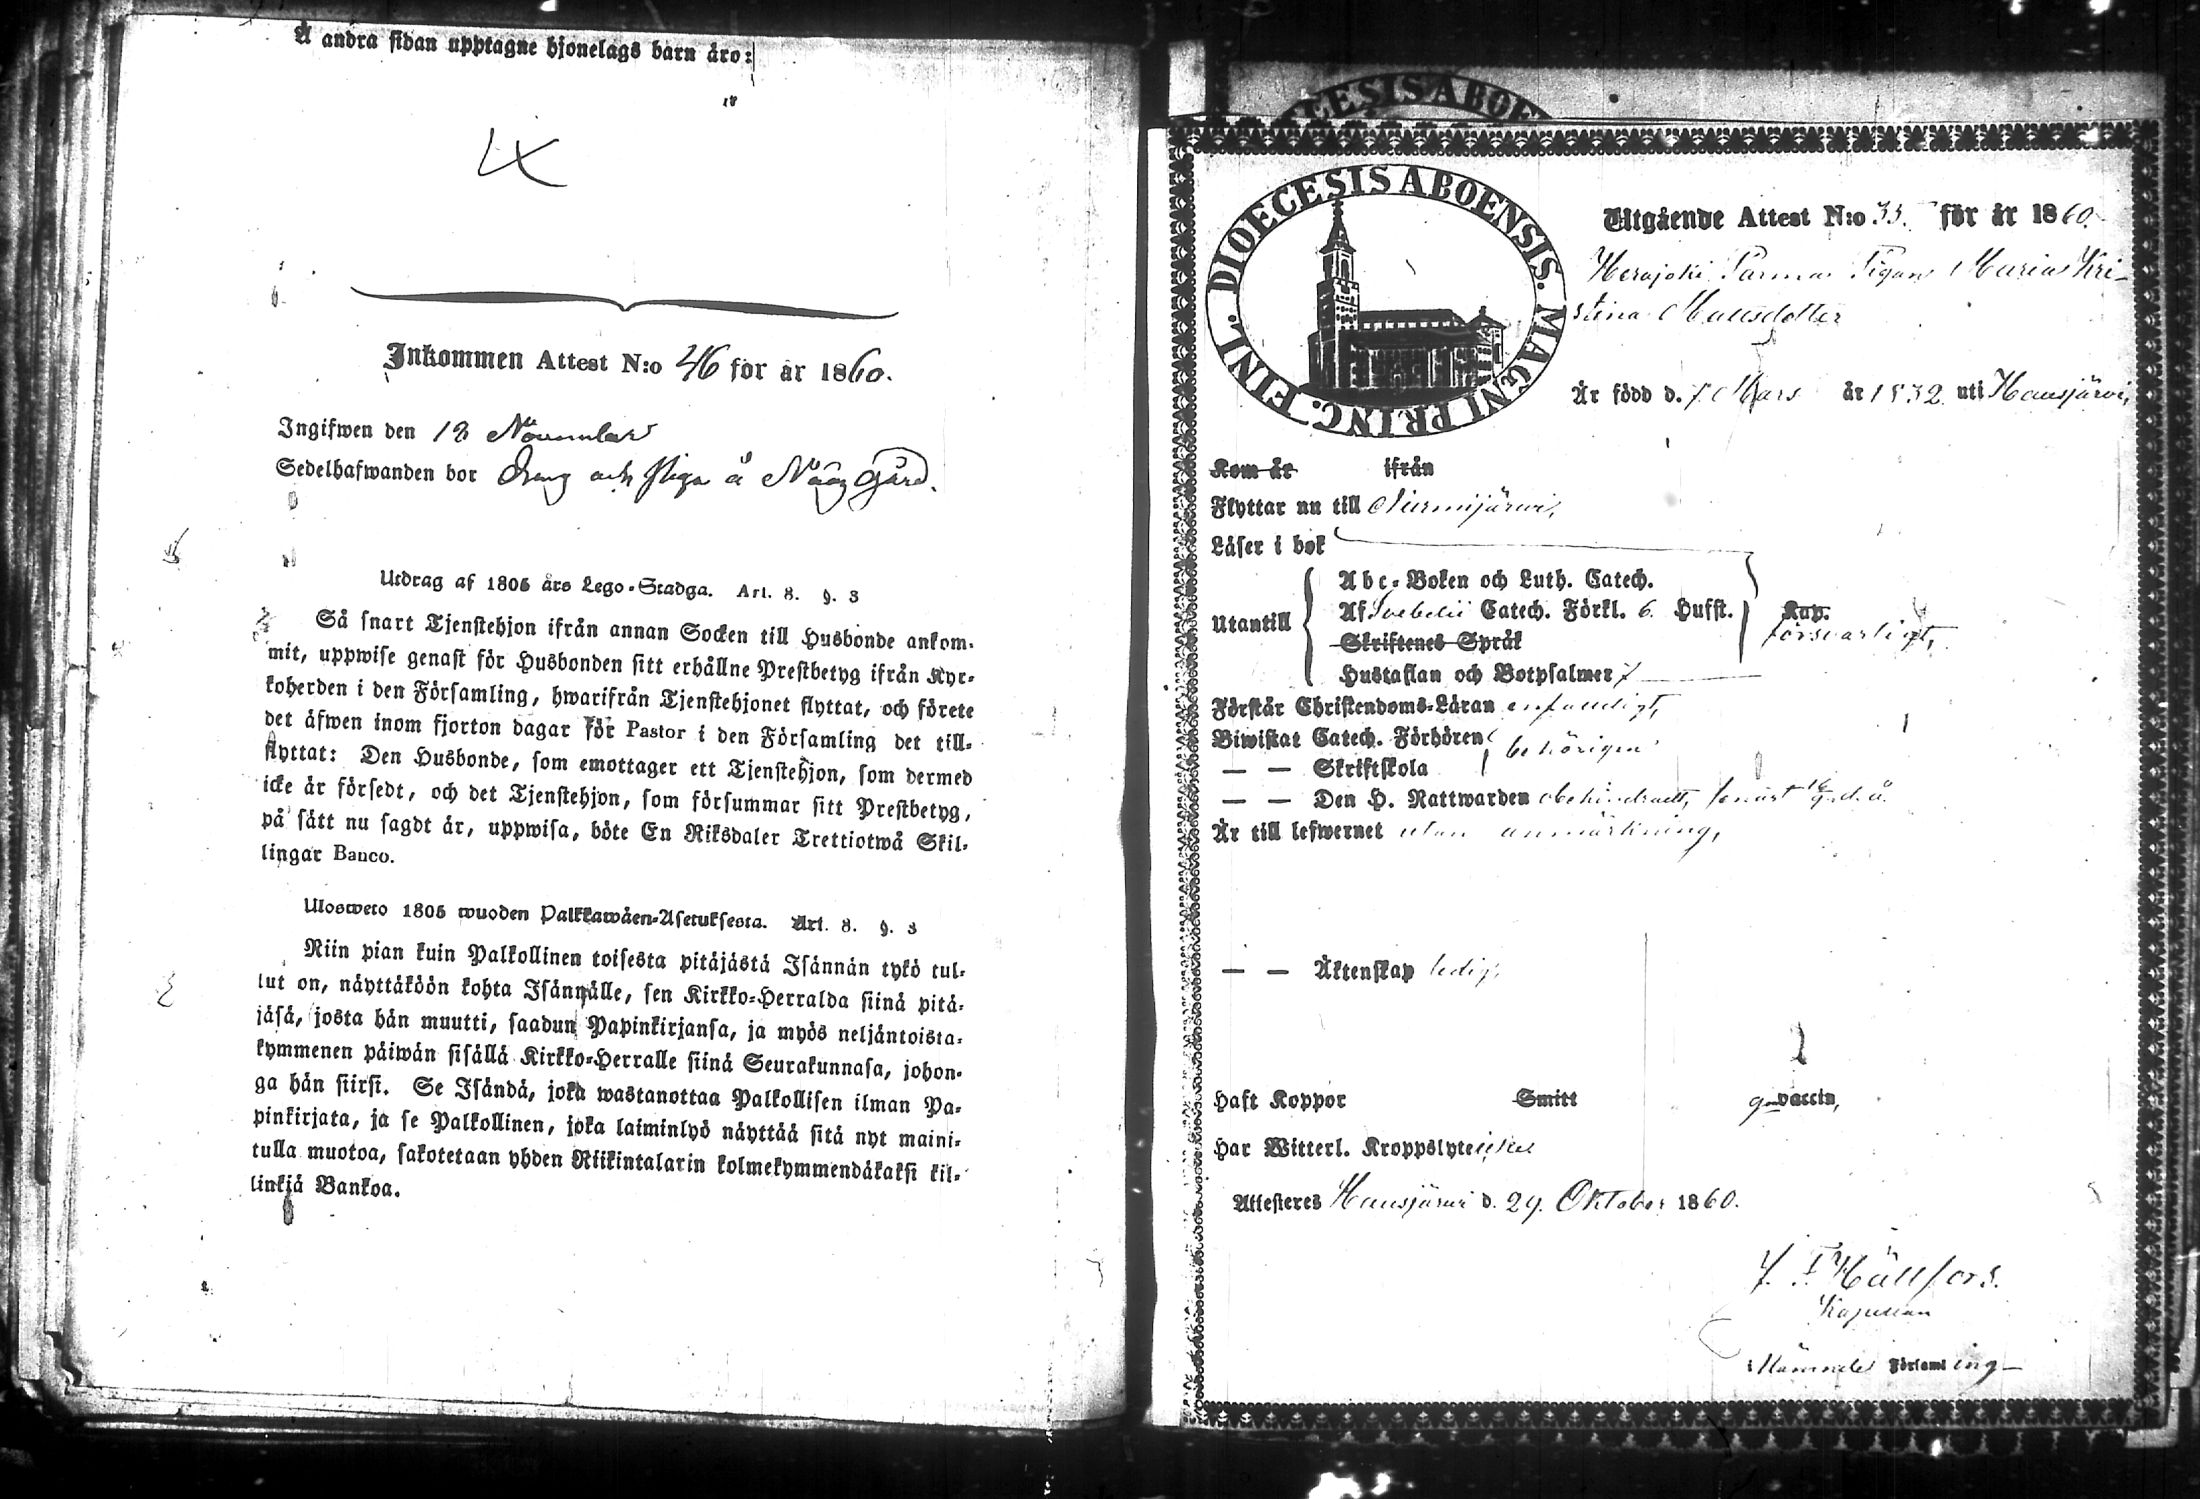 Å andra sidan upptagne hjonelags barn äro:
Inkommen Attest N:o 46 för år 1860.
Ingifwen den 18 November
Sedelhafwanden bor Dräng och piga å Näägård.
Utdrag af 1805 års Lego-Stadga. Art. 8. §. 3
Så snart Tjenstehjon ifrån annan Socken till Husbonde ankom-
mit, uppwise genast för Husbonden sitt erhållne Prestbetyg ifrån Kyr-
koherden i den Församling, hwarifrån Tjenstehjonet flyttat, och förete
det äfwen inom fjorton dagar för Pastor i den Församling det till-
flyttat: Den Husbonde, som emottager ett Tjenstehjon, som dermed
icke är försedt, och det Tjenstehjon, som försummar sitt Prestbetyg,
på sätt nu sagdt är, uppwisa, böte En Riksdaler Trettiotwå Skil-
lingar Banco.
Ulosweto 1805 wuoden Palkkawäen-Asetuksesta. Art. 8. §. 3
Niin pian kuin Palkollinen toisesta pitäjästä Isännän tykö tul-
lut on, näyttäköön kohta Isännälle, sen Kirkko-Herralda siinä pitä-
jäsä, josta hän muutti, saadun Papinkirjansa, ja myös neljäntoista-
kymmenen päiwän sisällä Kirkko-Herralle siinä Seurakunnasa, johon-
ga hän siirsi. Se Isändä, joka wastanottaa Palkollisen ilman Pa-
pinkirjata, ja se Palkollinen, joka laiminlyö näyttää sitä nyt maini-
tulla muotoa, sakotetaan yhden Riikintalarin kolmekymmendäkaksi kil-
linkiä Bankoa.
DIOECESIS ABOE
DIOECESIS ABOENSIS. MAGNI PRINC. FINL.
Utgående Attest N:o 35. för år 1860.
Herajoki Parma Pigan Maria Kri-
stina Mattsdotter
Är född d. 7 Mars år 1832 uti Hausjärvi,
Kom år ifrån
Flyttar nu till Nurmijärvi,
Läser i bok
Abc-Boken och Luth. Catech.
Utantill Af Svebelii Catech. Förkl. 6. Hufst. Kap. försvarligt,
Skriftenes Språk
Hustaflan och Botpsalmer
Förstår Christendoms-Läran enfaldigt,
Biwistat Catech. Förhören behörigen
— — Skriftskola
— — Den H. Nattwarden obehindradt, senast d. å.
Är till lefwernet utan anmärkning,
— — Äktenskap ledig,
Haft Koppor Smitt vaccin,
Har Witterl. Kroppslyte icke
Attesteres Hausjärvi d. 29. Oktober 1860.
J. F. Hällfors.
Kapellan
i Hämnde Församling